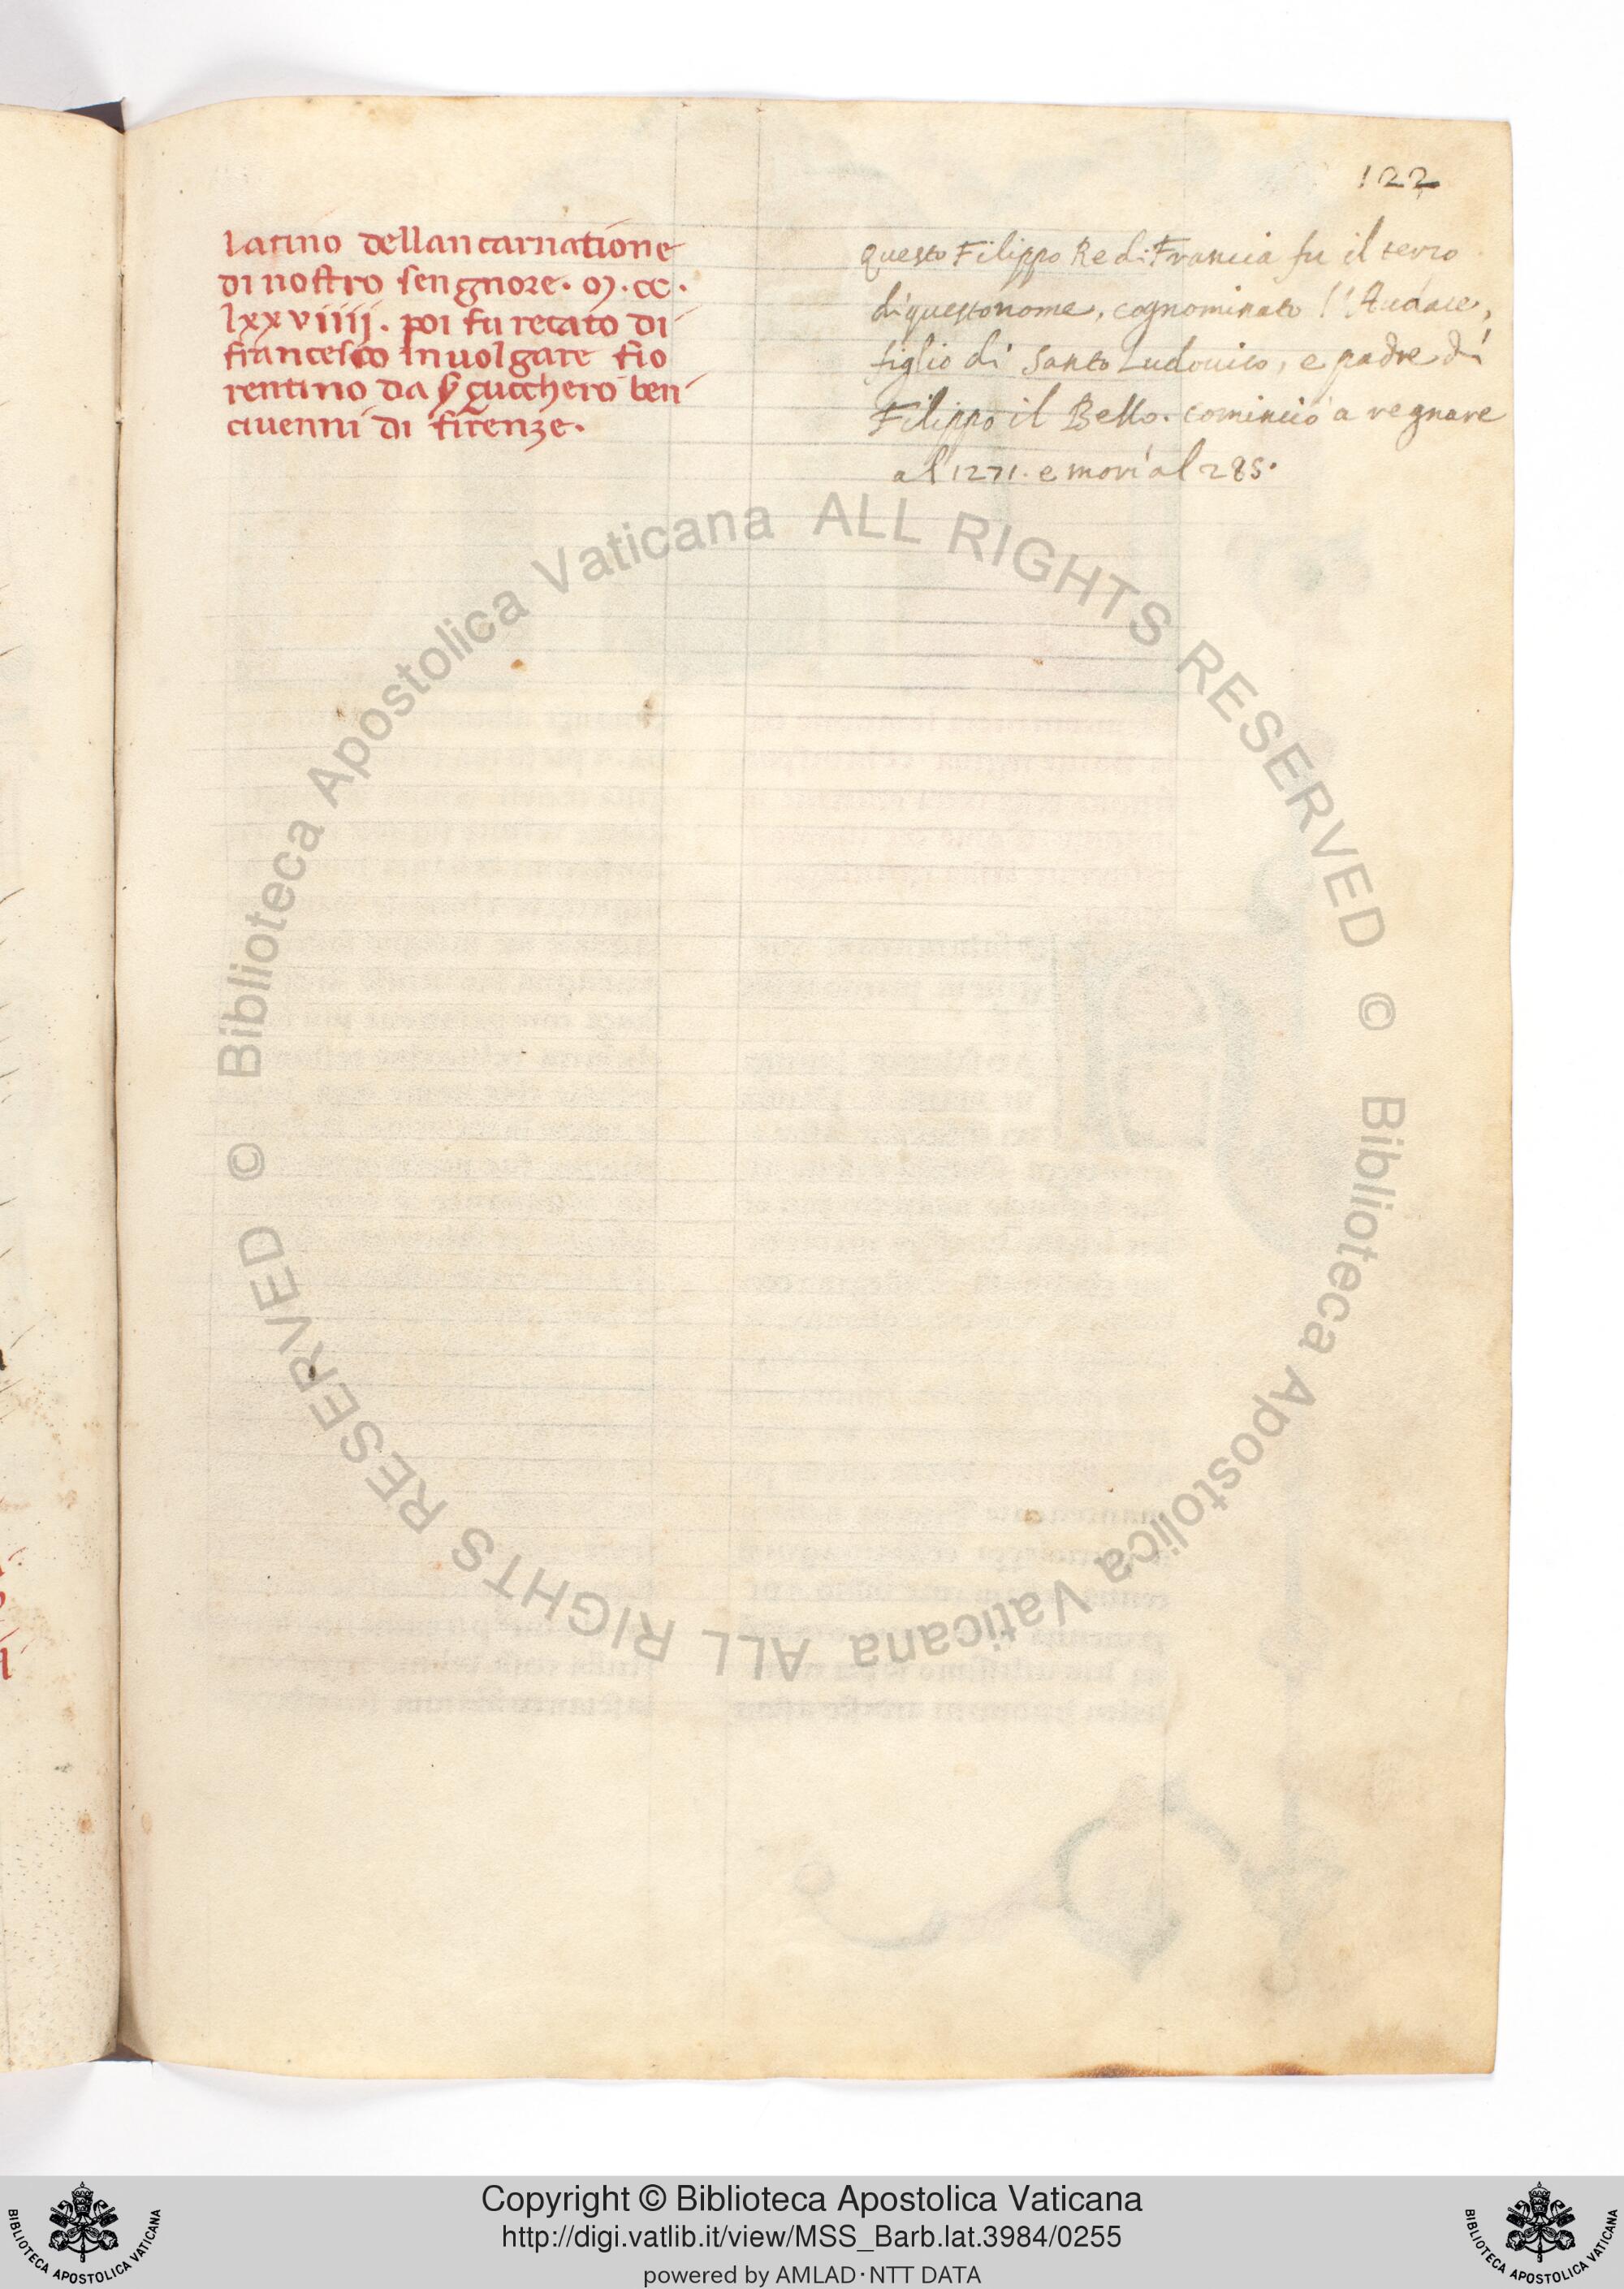 122
latino dellancarnatione
di nostro sengnore. M. cc.
lxxviiii. poi fu recato di
francesco in uolgare fio
rentino da ẜ çucchero ben
ciuenni di firenze.
Questo Filippo Re di Francia fu il terzo
di questo nome, cognominato l'Audace,
figlio di Santo Ludouico, e padre di
Filippo il Bello. cominciò a regnare
al 1271. e morì al 285.
© Biblioteca Apostolica Vaticana ALL RIGHTS RESERVED
© Biblioteca Apostolica Vaticana ALL RIGHTS RESERVED
Copyright © Biblioteca Apostolica Vaticana
http://digi.vatlib.it/view/MSS_Barb.lat.3984/0255
powered by AMLAD·NTT DATA
BIBLIOTECA APOSTOLICA VATICANA
BIBLIOTECA APOSTOLICA VATICANA